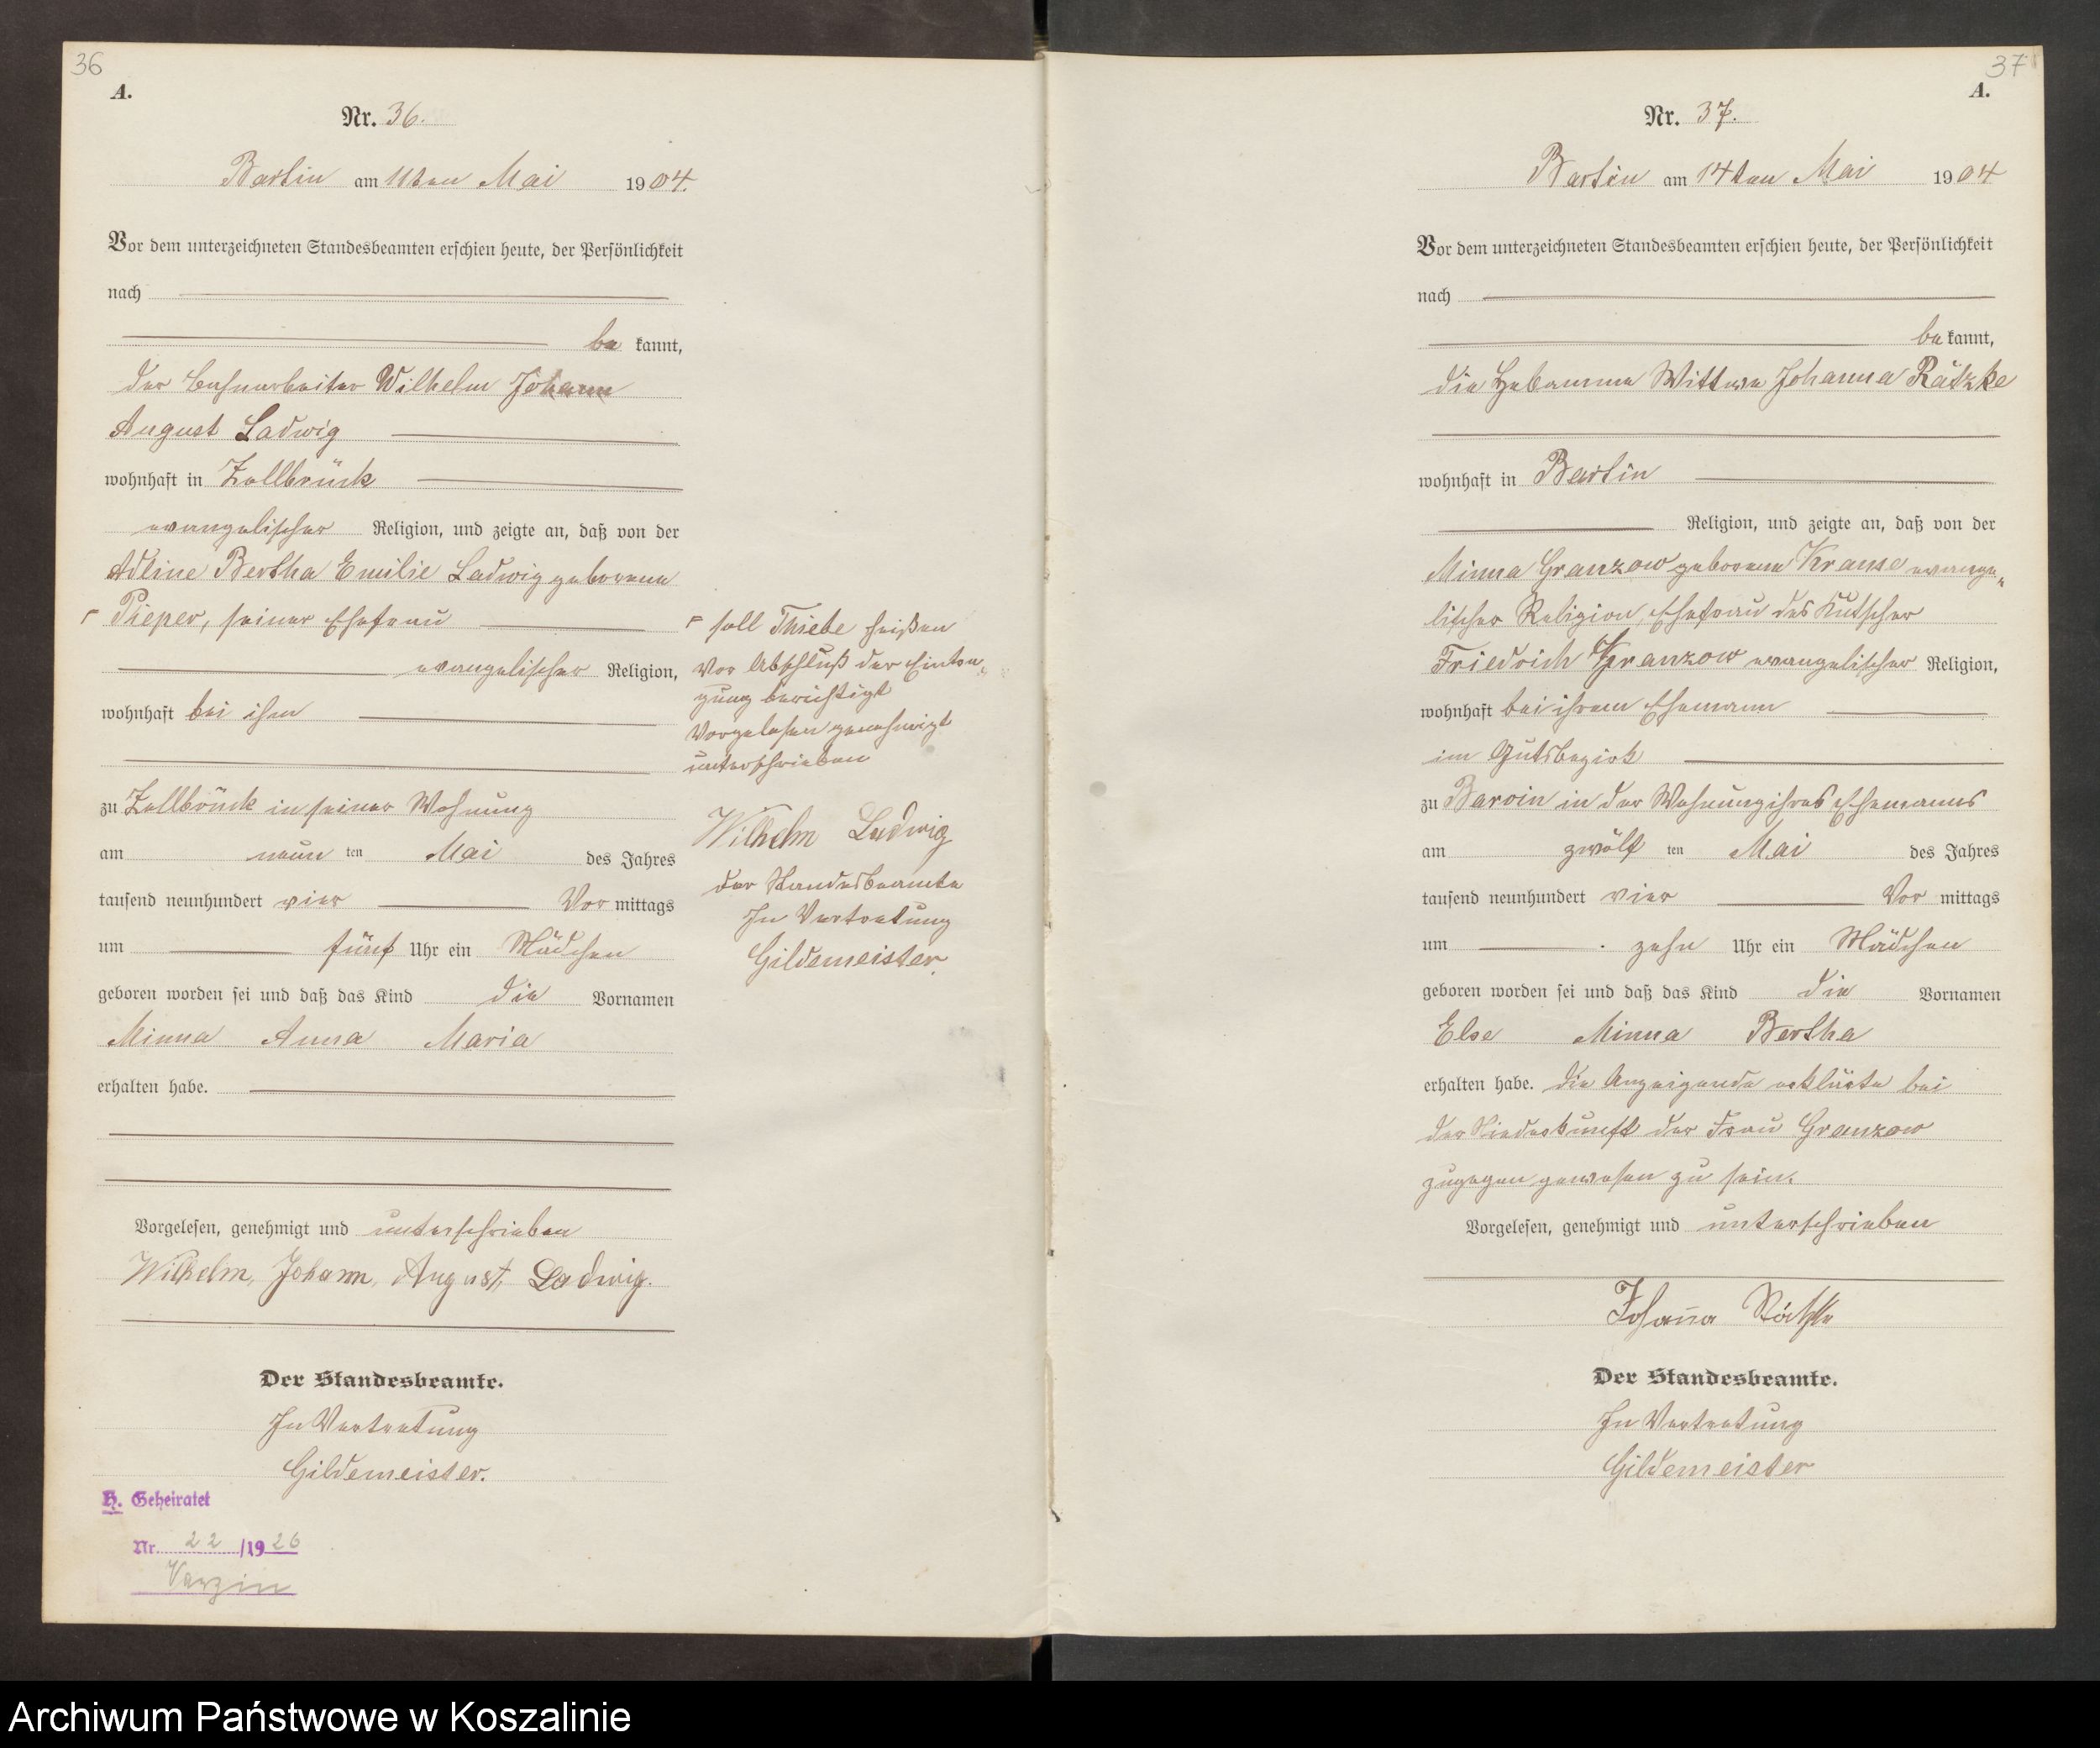 36
A.
Nr. 36.
Bartin am 11ten Mai 1904.
Vor dem unterzeichneten Standesbeamten erschien heute, der Persönlichkeit
nach
be kannt,
der Bahnarbeiter Wilhelm Johann
August Ladwig
wohnhaft in Zollbrück
evangelischer Religion, und zeigte an, daß von der
Adline Bertha Emilie Ladwig geborene
Pieper, seiner Ehefrau
evangelischer Religion,
wohnhaft bei ihm
zu Zollbrück in seiner Wohnung
am neun ten Mai des Jahres
tausend neunhundert vier Vor mittags
um fünf Uhr ein Mädchen
geboren worden sei und daß das Kind die Vornamen
Minna Anna Maria
erhalten habe.
Vorgelesen, genehmigt und unterschrieben
Wilhelm, Johann, August, Ladwig.
Der Standesbeamte.
In Vertretung
Gildemeister.
H. Geheiratet
Nr. 22 /1926
Varzin
soll Thiebe heißen
Vor Abschluß der Eintra„
gung berichtigt
Vorgelesen genehmigt
unterschrieben
Wilhelm Ladwig
der Standesbeamte
In Vertretung
Gildemeister.
37
A.
Nr. 37.
Bartin am 14ten Mai 1904
Vor dem unterzeichneten Standesbeamten erschien heute, der Persönlichkeit
nach
be kannt,
die Hebamme Wittwe Johanna Rätzke
wohnhaft in Bartin
Religion, und zeigte an, daß von der
Minna Granzow geborene Krause evange„
lischer Religion, Ehefrau des Kutscher
Friedrich Granzow evangelischer Religion,
wohnhaft bei ihrem Ehemann
im Gutsbezirk
zu Barvin in der Wohnung ihres Ehemanns
am zwölf ten Mai des Jahres
tausend neunhundert vier Vor mittags
um zehn Uhr ein Mädchen
geboren worden sei und daß das Kind die Vornamen
Else Minna Bertha
erhalten habe. Die Anzeigende erklärte bei
der Niederkunft der Frau Granzow
zugegen gewesen zu sein.
Vorgelesen, genehmigt und unterschrieben
Johanna Rätzke
Der Standesbeamte.
In Vertretung
Gildemeister
Archiwum Państwowe w Koszalinie